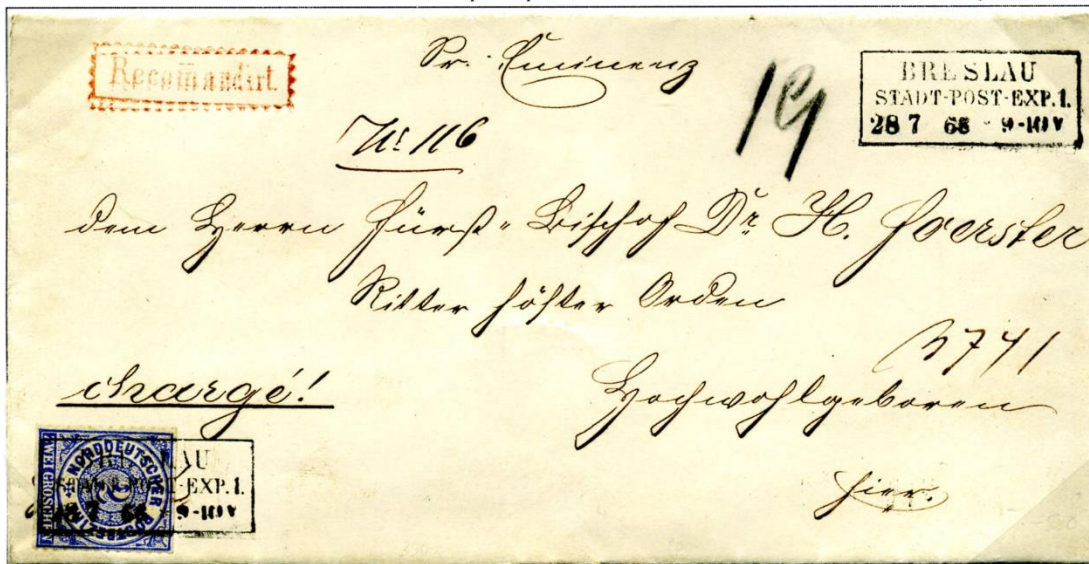 Recomandirt.
Sr. Eminenz
BRESLAU
STADT-POST-EXP. 1.
28 7 68 9-10 V
No 116
dem Herrn Fürst-Bischof Dr. H. Foerster
Ritter höster Orden
3741
chargé!
Hochwohlgeboren
hier.
NORDDEUTSCHER POSTBEZIRK
ZWEI GROSCHEN
2
LAU
POST-EXP. 1.
28 7 68 9-10 V